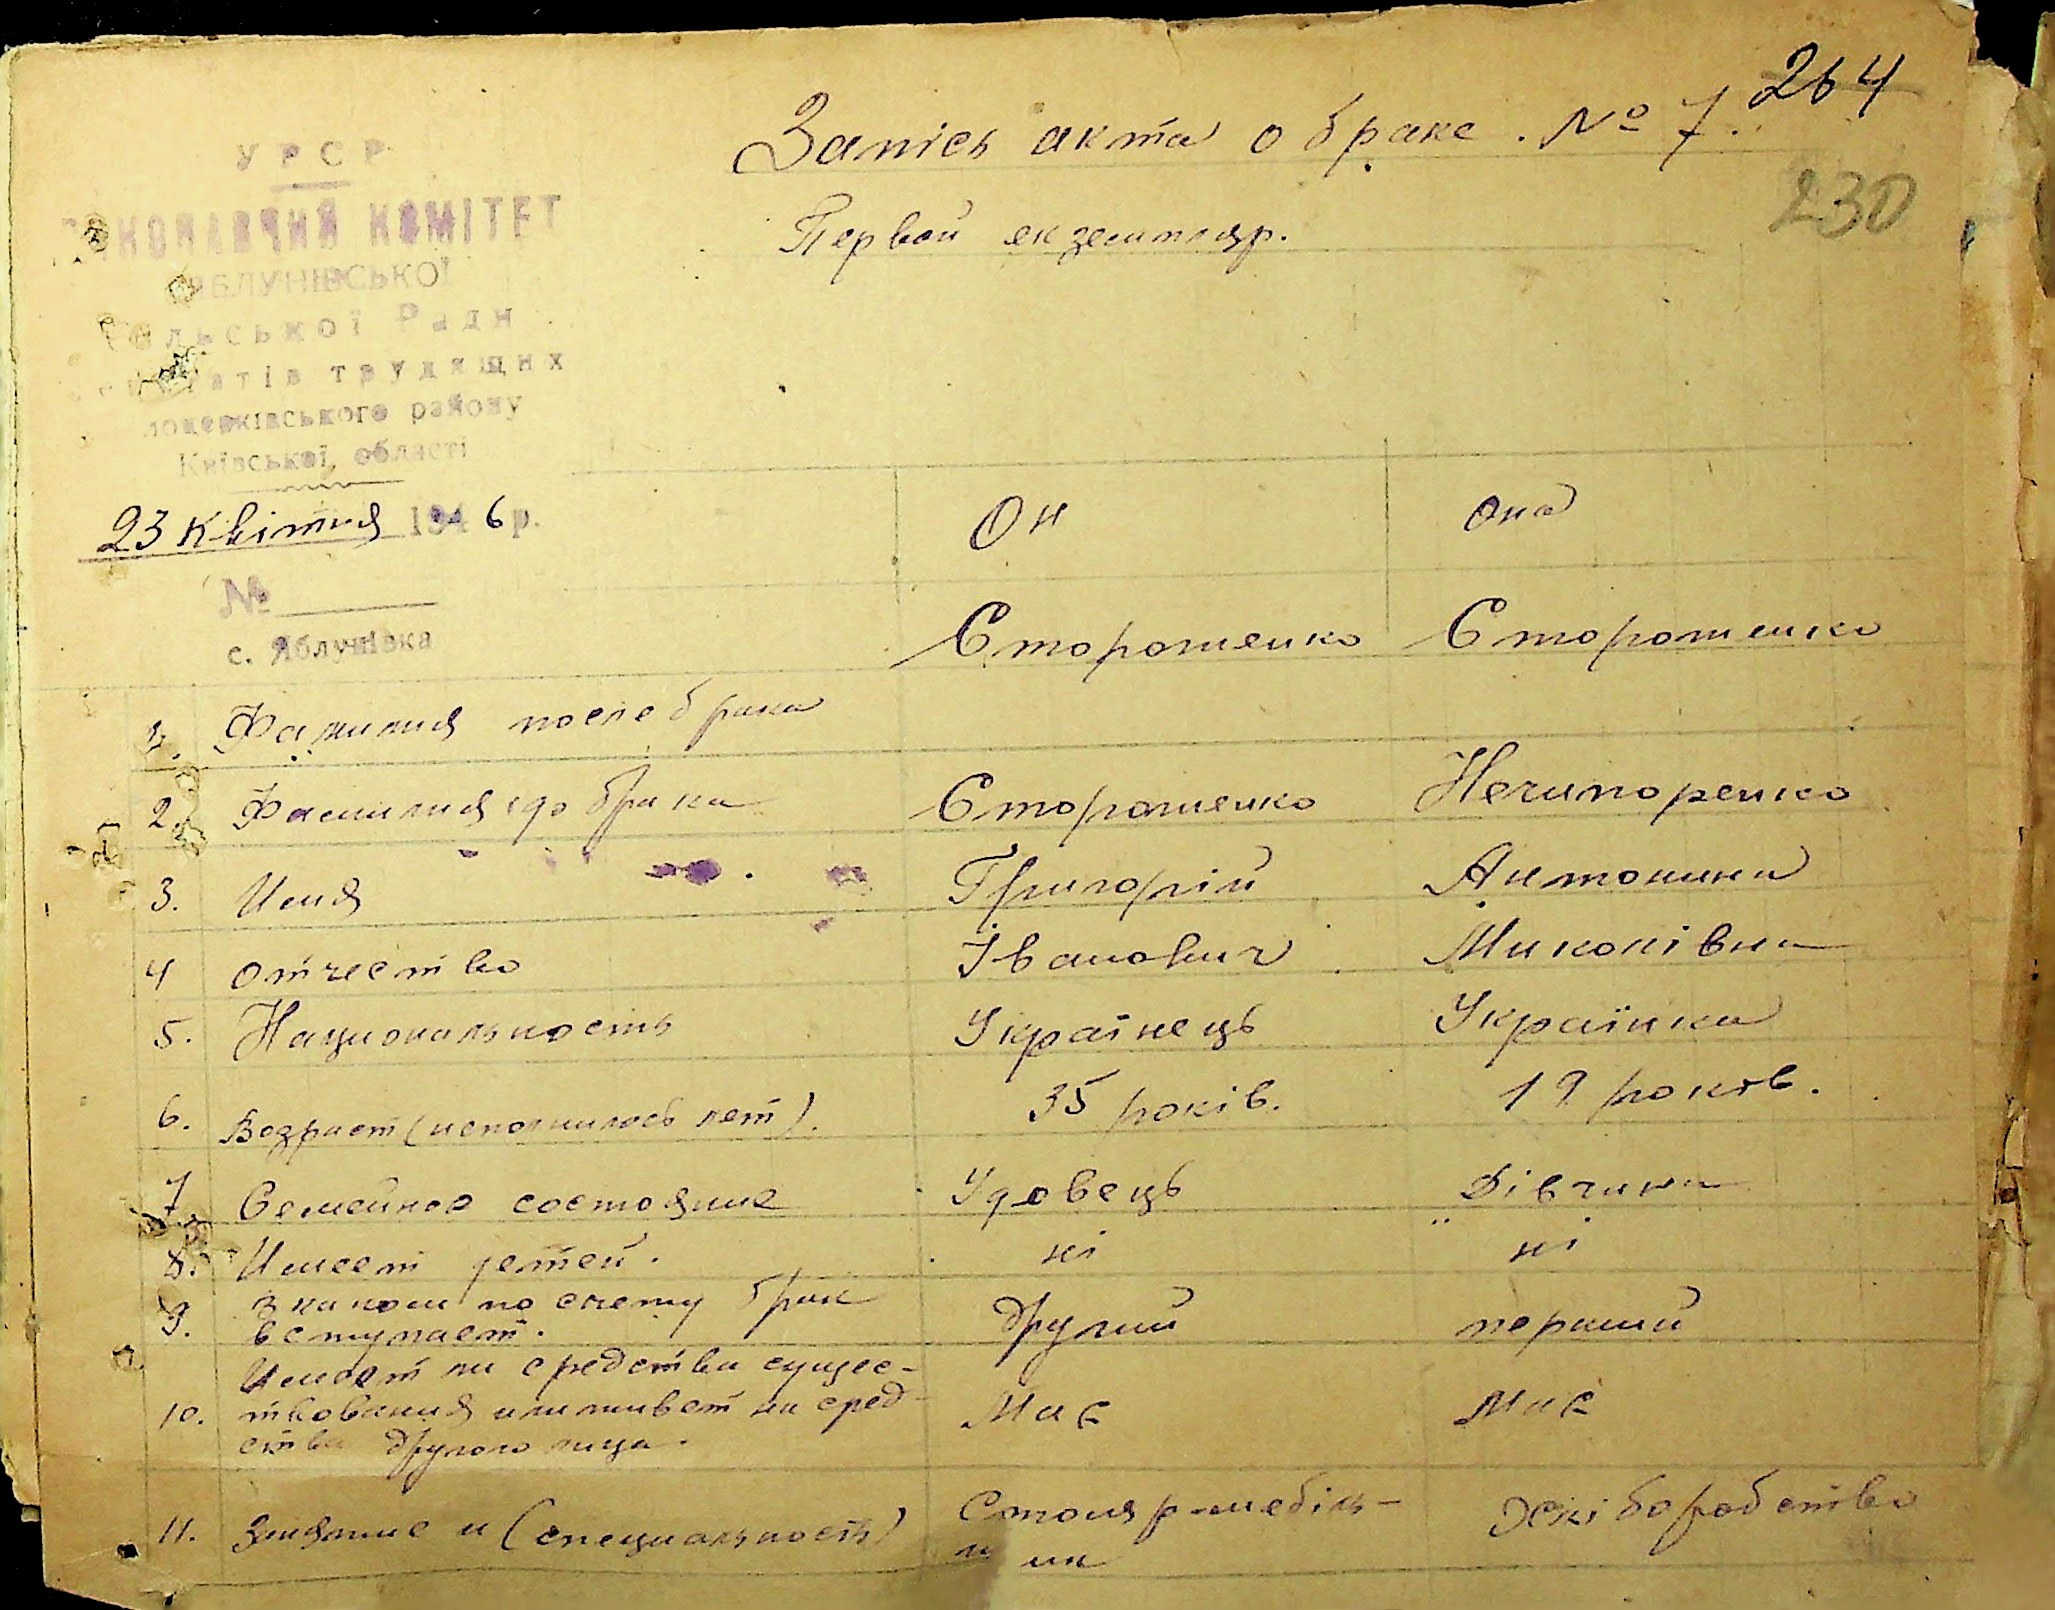 264
Запісь акта о браке. № 7.
230
УРСР
ВИКОНАВЧИЙ КОМІТЕТ
ЯБЛУНІВСЬКОЇ
Сільської Ради
депутатів трудящих
Білоцерківського району
Київської області
23 квітня 1946 р.
№
с. Яблунівка
Первой екземпляр.
Он Она
1. Фамилия после брака Сторошенко Сторошенко
2. Фамилия до брака Сторошенко Нечипоренко
3. Имя Григорій Антонина
4 отчество Іванович Миколівна
5. Национальность Українець Українка
6. Возраст (исполнилось лет). 35 років. 19 років.
7 Семейное состояние Удовець Дівчина
8. Имеет детей. ні ні
9. В каком по счету брак
вступает. другий перший
Имеет ли средства сущес-
10. твования или живет на сред- Має Має
ства другого лица.
11. Занятие и (специальность) Столяр-мебіль- Хліборобство
ник